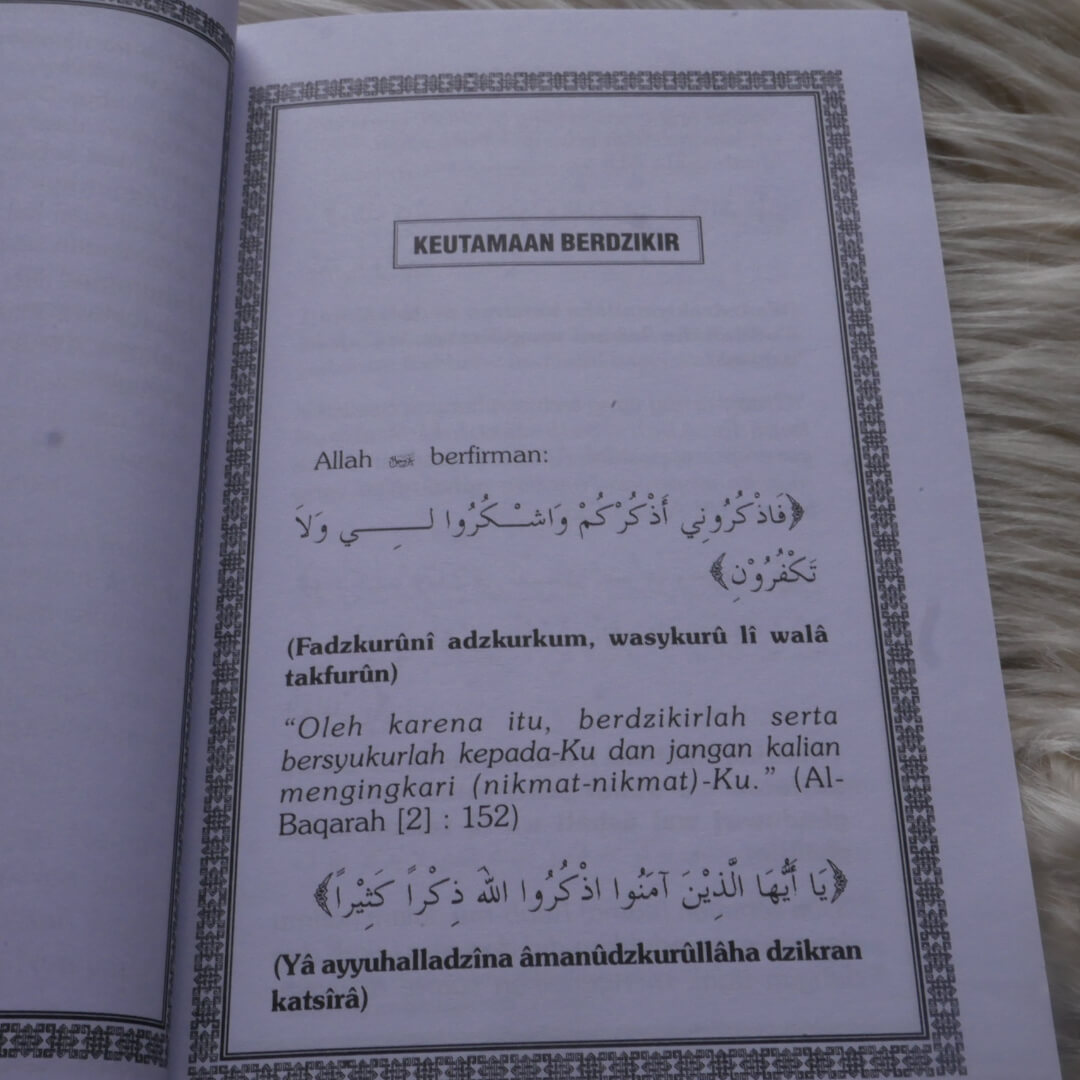 KEUTAMAAN BERDZIKIR
Allah ﷻ berfirman:
﴿فَاذْكُرُونِي أَذْكُرْكُمْ وَاشْـكُرُوا لِـــــي وَلاَ
تَكْفُرُوْنِ﴾
(Fadzkurûnî adzkurkum, wasykurû lî walâ
takfurûn)
“Oleh karena itu, berdzikirlah serta
bersyukurlah kepada-Ku dan jangan kalian
mengingkari (nikmat-nikmat)-Ku.” (Al-
Baqarah [2] : 152)
﴿يَا أَيُّهَا الَّذِيْنَ آمَنُوا اذْكُرُوا اللهَ ذِكْرًا كَثِيْرًا﴾
(Yâ ayyuhalladzîna âmanûdzkurûllâha dzikran
katsîrâ)